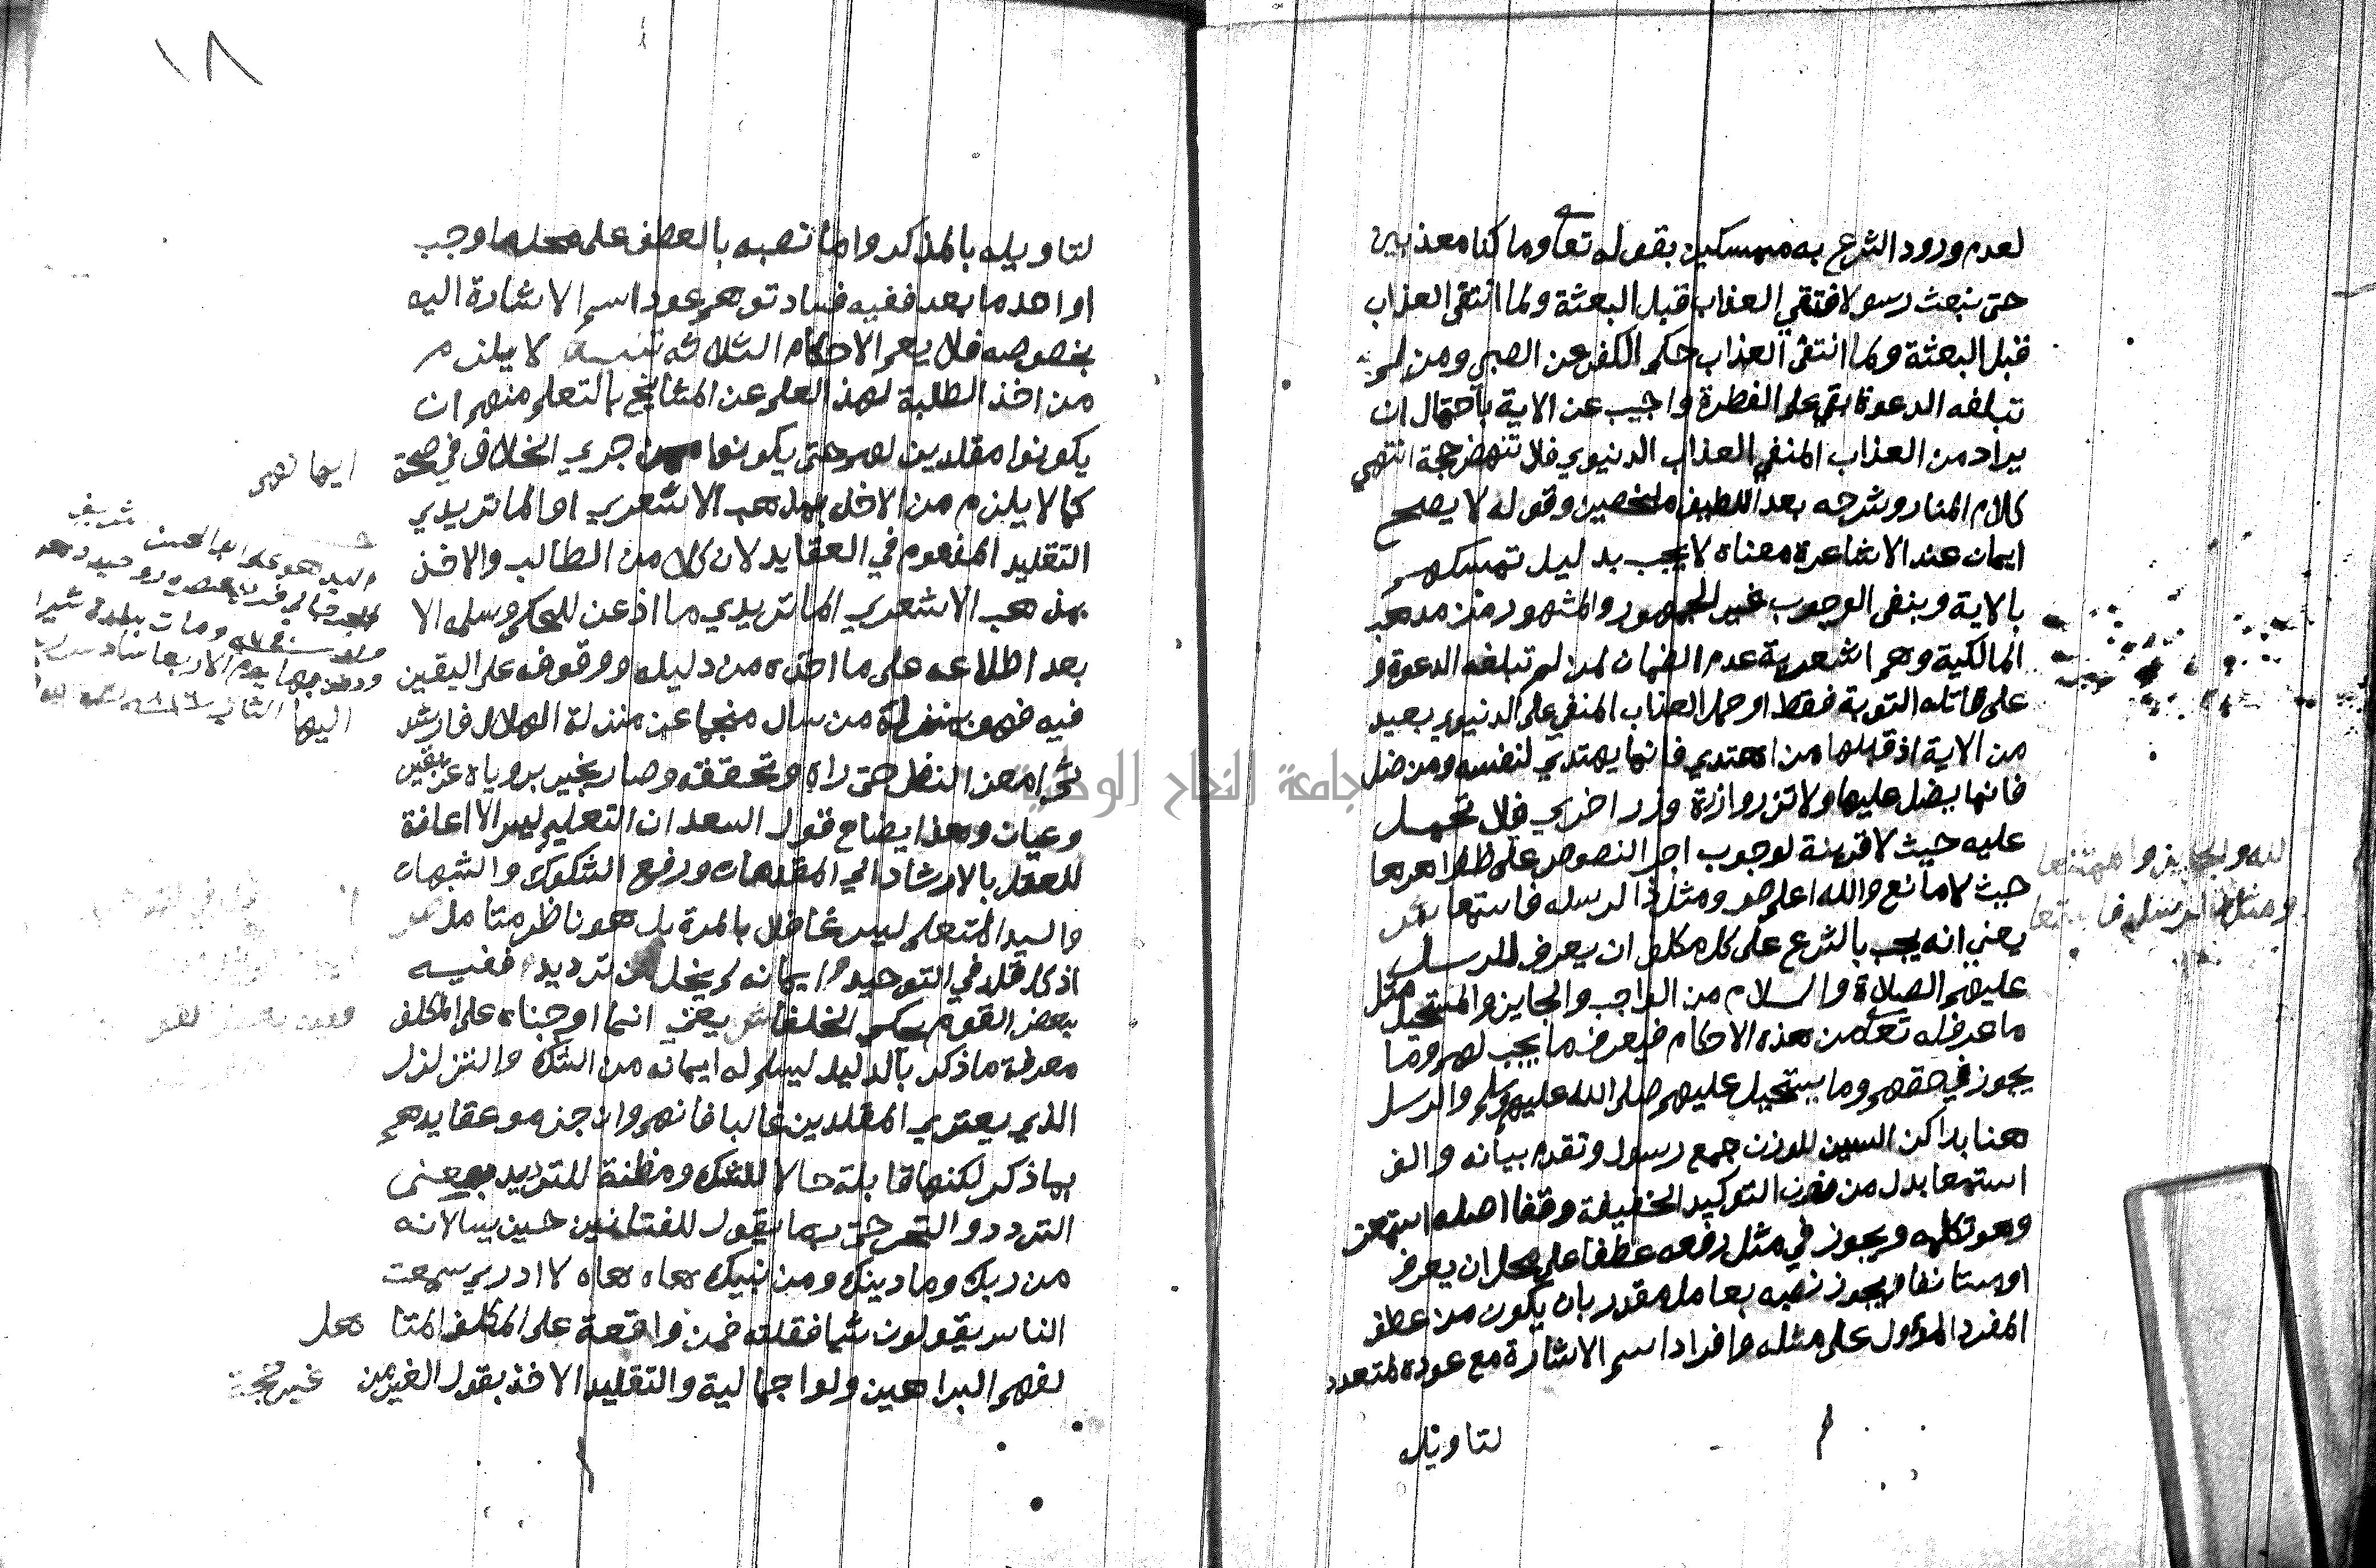 لعدم ورود الشرع به متمسكين بقوله تعا وما كنا معذبين
حتى نبعث رسولا فنتقي العذاب قبل البعثة ولما انتقى العذاب
قبل البعثة ولما انتقى العذاب حكم الكفر عن الصبي ومن لم
تبلغه الدعوة بقي على الفطرة واجيب عن الاية باحتمال ان
يراد من العذاب المنفي العذاب الدنيوي فلا تنهض حجة انتهى
كلام المنار وشرحه بعد اللطيف ملخصين وقوله لا يصح
ايمان عند الاشاعرة معناه لا يجب بدليل تمسكهم
بالاية وبنفي الوجوب غير الجمهور والمشهور من مذهب
المالكية وهم اشعرية عدم الضمان لمن لم تبلغه الدعوة و
على قاتله التوبة فقط او حمل العذاب المنفي على الدنيوي بعيد
من الاية اذ قبلها من اهتدي فانما يهتدي لنفسه ومن ضل
فانما يضل عليها ولا تزر وازرة وزر اخري فلا تحمل
عليه حيث لا قرينة لوجوب اجرا النصوص على ظواهرها
حيث لا مانع والله اعلم ص ومثل ذا لرسله فاستمعا ش
يعني انه يجب بالشرع على كل مكلف ان يعرف للرسل
عليهم الصلاة والسلام من الواجب والجايز والمستحيل مثل
ما عرف له تعا من هذه الاحكام فيعرف ما يجب لهم وما
يجوز في حقهم وما يستحيل عليهم صلى الله عليهم وسلم والرسل
هنا باسكن السين للوزن جمع رسول وتقدم بيانه والف
استمعا بدل من نون التوكيد الخفيفة وقفا اصله استمعن
وهو تكلمه ويجوز في مثل رفعه عطفا على محل ان يعرف
اوستانفا ويجوز نصبه بعامل مقدر بان يكون من عطف
المفرد المؤول على مثله وافراد اسم الاشارة مع عوده لمتعدد
لتاويله
لله والجايز والممتنعا
ومثل ذا لرسله فاستمعا
١٨
لتاويله بالمذكر واما نصبه بالعطف على محل ما وجب
او احد ما بعد ففيه فساد توهم عود اسم الاشارة اليه
بخصوصه فلا يعم الاحكام الثلاثه تنبيه لا يلزم
من اخذ الطلبة لهذ العلم عن المشايخ بالتعلم منهم ان
يكونوا مقلدين لهم حتى يكونوا ممن جري الخلاف في صحة
ايمانهم
كما لا يلزم من الاخذ بمذهب الاشعري او الماتريدي
التقليد المذموم في العقايد لان كلا من الطالب والاخذ
بمذهب الاشعري الماتريدي ما اذعن للحكم وسلمه الا
بعد اطلاعه على ما اخذه من دليله ووقوفه على اليقين
فيه فهو بمنزلة من سال منجما عن منزلة الهلال فارشد
اليها
ثم امعن النظر حتى راه وتحققه وصار يخبر بروياه عن يقين
وعيان وهذا ايضاح قول السعد ان التعليم ليس الا اعانة
للعقل بالارشاد الي المقدمات ورفع الشكوك والشبهات
والسيد المتعلم ليس غافلا بالمرة بل هو ناظر متامل ص
اذ كل من قلد في التوحيد ايمانه لم يخل من ترديد ففيه
ببعض القوم يحكي الخلفا ش يعني انما اوجبنا على المكلف
معرفة ما ذكر بالدليل ليسلم له ايمانه من الشك والتزلزل
الذي يعتري المقلدين غالبا فانهم وان جزمو عقايدهم
بما ذكر لكنها قابلة حالا للشك ومظنة للترديد بمعنى
التردد والتحير حتى ربما يقول للفتانين حين يسالانه
من ربك وما دينك ومن نبيك هاه هاه لا ادري سمعت
الناس يقولون شيا فقلته فمن واقعة على المكلف المتا هل
لفهم البراهين ولو اجمالية والتقليد الاخذ بقول الغير من غير حجة